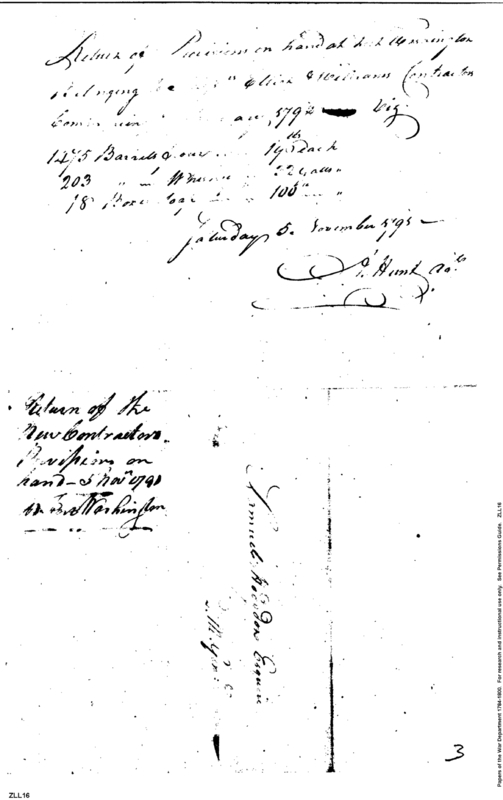 Return of Provisions on hand at Fort Washington
belonging to Elliott & Williams Contractors
1792 Viz
1475 Barrels flour 195 lb each
203 " " Whiskey 22 Galls "
18 Boxes Soap 100 " "
Saturday 5. November 179
P. Hunt
Return of the
New Contractors
Provisions on
hand - 5 Nov 179
at Fort Washington
Samuel Hodgdon Esquire
3
Papers of the War Department 1784-1800. For research and instructional use only. See Permissions Guide. ZLL16
ZLL16